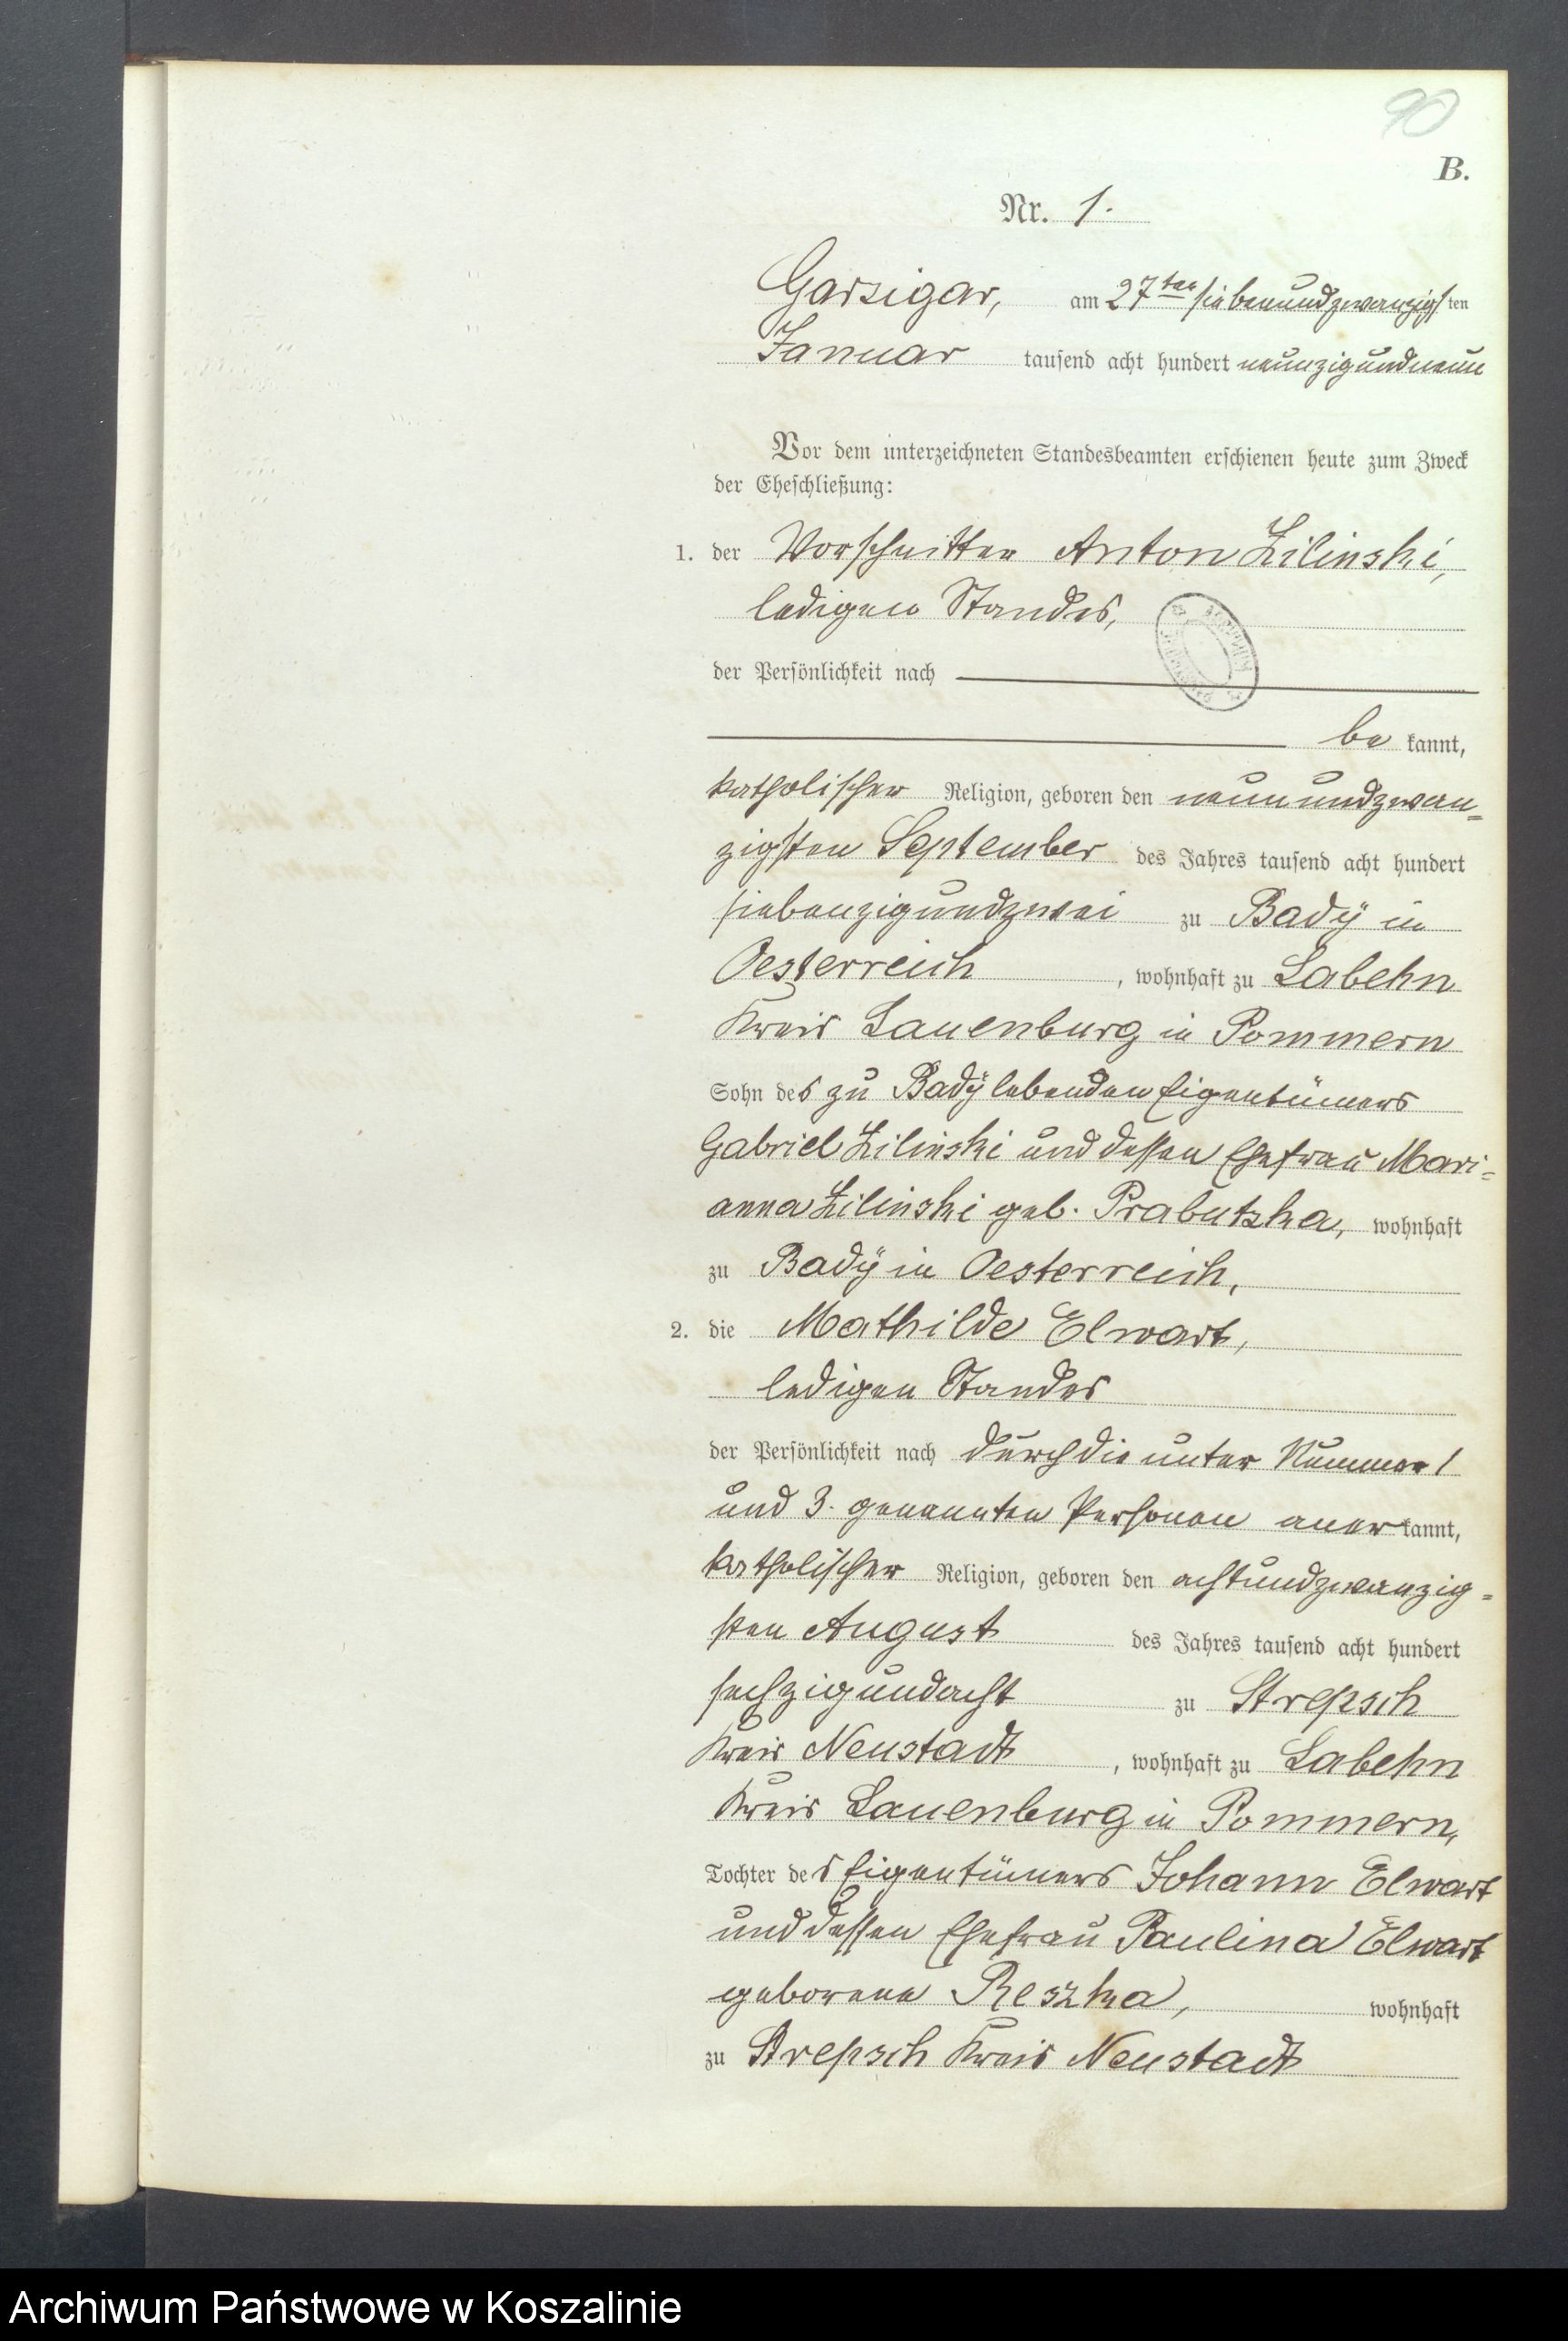 90
B.
Nr. 1.
Garzigar, am 27ten siebenundzwanzigsten
Januar tausend acht hundert neunzigundneun
Vor dem unterzeichneten Standesbeamten erschienen heute zum Zweck
der Eheschließung:
1. der Vorschnitter Anton Zilinski,
ledigen Standes,
der Persönlichkeit nach
be kannt,
katholischer Religion, geboren den neunundzwan=
zigsten September des Jahres tausend acht hundert
siebenzigundzwei zu Badÿ in
Oesterreich, wohnhaft zu Labehn
Kreis Lauenburg in Pommern
Sohn des zu Badÿ lebenden Eigentümers
Gabriel Zilinski und dessen Ehefrau Mari=
anna Zilinski geb. Prabutzka, wohnhaft
zu Badÿ in Oesterreich,
2. die Mathilde Elwart,
ledigen Standes
der Persönlichkeit nach durch die unter Nummer 1
und 3. genannten Personen anerkannt,
katholischer Religion, geboren den achtundzwanzig=
sten August des Jahres tausend acht hundert
sechzigundacht zu Strepsch
Kreis Neustadt, wohnhaft zu Labehn
Kreis Lauenburg in Pommern,
Tochter des Eigentümers Johann Elwart
und dessen Ehefrau Paulina Elwart
geborene Reszka, wohnhaft
zu Strepsch Kreis Neustadt
Archiwum Państwowe w Koszalinie